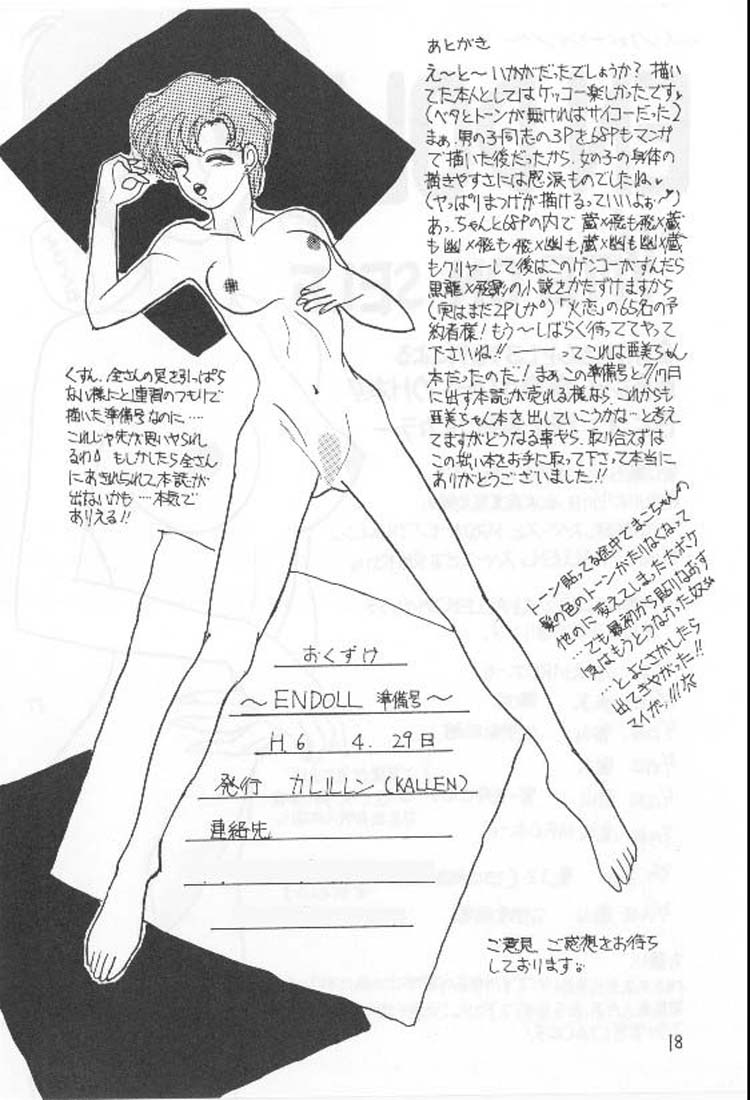 あとがき
え〜と〜いかがだったでしょうか？描い
てた本人としてはケッコー楽しかったです。
(ベタとトーンが無ければサイコーだった)
まぁ、男の子同志の3Pを68Pもマンガ
で描いた後だったから、女の子の身体の
描きやすさには感涙ものでしたね。
(ヤッぱりまつげが描けるっていいよぉ〜)
あっ、ちゃんと68Pの内で蔵×飛も飛×蔵
も幽×飛も飛×幽も、蔵×幽も幽×蔵
もクリヤーして後はこのゲンコーがすんだら
黒龍×飛影の小説をかたずけますから
(実はまだ2Pしか)「火恋」の65名の予
約者様！もう〜しばらく待っててやって
下さいね!!……ってこれは亜美ちゃん
本だったのだ！まぁこの準備号と7/17日
に出す本誌が売れる様なら、これからも
亜美ちゃん本を出していこうかな…と考え
てますがどうなる事やら、取り合えずは
この拙い本をお手に取って下さって本当に
ありがとうございました!!
くすん、全さんの足を引っぱら
ない様にと練習のつもりで
描いた準備号なのに……
これじゃ先が思いやられ
るわ もしかしたら全さん
にあきれられて本誌が
出ないかも…本気で
ありえる!!
トーン貼ってる途中でまーちゃんの
髪の色のトーンがたりなくなって
他のに変えてしまった大ボケ
…でも最初から貼りなおす
気はもうとうなかった奴
…とよくさがしたら
出てきやがった!!
マイガッ!!!
おくずけ
〜ENDOLL 準備号〜
H.6 4.29日
発行 カレルレン(KALLEN)
連絡先
ご意見、ご感想をお待ち
しております。
18